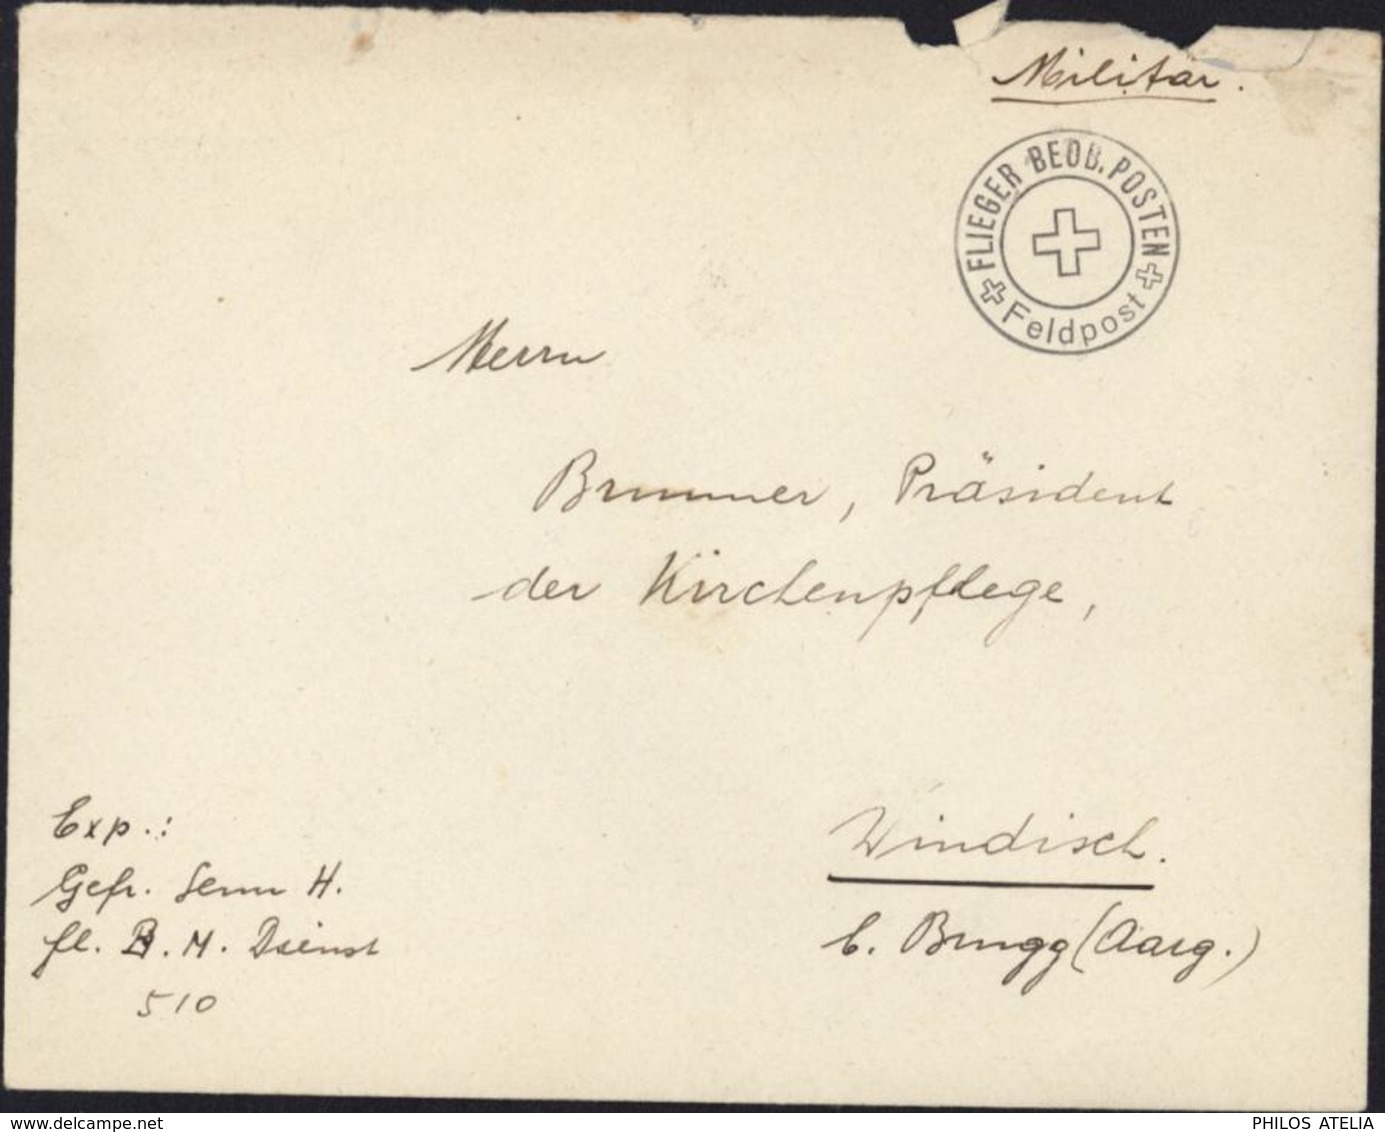 Militär.
FLIEGER BEOB. POSTEN
Feldpost
Herrn
Brunner, Präsident
der Kirchenpflege,
Windisch.
b. Brugg (Aarg.)
Exp.:
Gefr. Senn H.
fl. B. M. Dienst
510
delcampe.net
PHILOS ATELIA